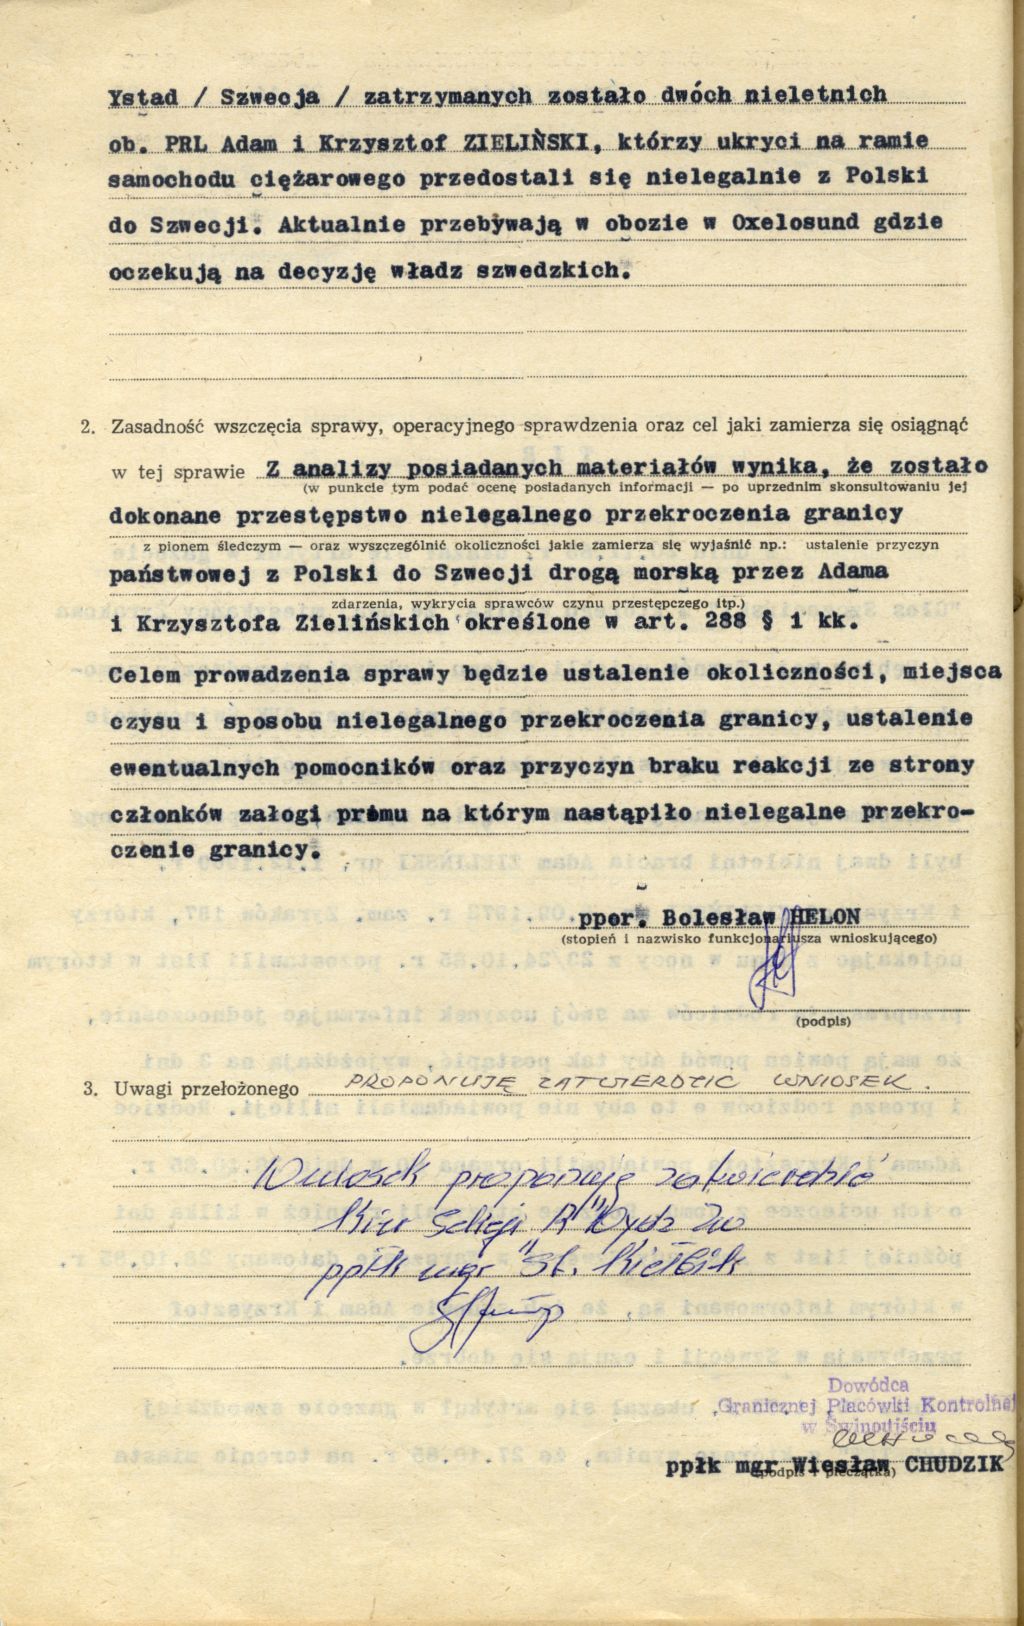 Ystad / Szwecja / zatrzymanych zostało dwóch nieletnich
ob. PRL Adam i Krzysztof ZIELIŃSKI, którzy ukryci na ramie
samochodu ciężarowego przedostali się nielegalnie z Polski
do Szwecji. Aktualnie przebywają w obozie w Oxelosund gdzie
oczekują na decyzję władz szwedzkich.
2. Zasadność wszczęcia sprawy, operacyjnego sprawdzenia oraz cel jaki zamierza się osiągnąć
w tej sprawie Z analizy posiadanych materiałów wynika, że zostało
(w punkcie tym podać ocenę posiadanych informacji — po uprzednim skonsultowaniu jej
dokonane przestępstwo nielegalnego przekroczenia granicy
z pionem śledczym — oraz wyszczególnić okoliczności jakie zamierza się wyjaśnić np.: ustalenie przyczyn
państwowej z Polski do Szwecji drogą morską przez Adama
zdarzenia, wykrycia sprawców czynu przestępczego itp.)
i Krzysztofa Zielińskich określone w art. 288 § 1 kk.
Celem prowadzenia sprawy będzie ustalenie okoliczności, miejsca
czysu i sposobu nielegalnego przekroczenia granicy, ustalenie
ewentualnych pomocników oraz przyczyn braku reakcji ze strony
członków załogi promu na którym nastąpiło nielegalne przekro-
czenie granicy.
ppor. Bolesław HELON
(stopień i nazwisko funkcjonariusza wnioskującego)
(podpis)
3. Uwagi przełożonego PROPONUJĘ ZATWIERDZIĆ WNIOSEK.
Wniosek proponuję zatwierdzić
Kier Sekcji "R" Wydz Zw
ppłk mgr St. Kiełbik
Dowódca
Granicznej Placówki Kontrolnej
w Świnoujściu
ppłk mgr Wiesław CHUDZIK
(podpis i pieczątka)